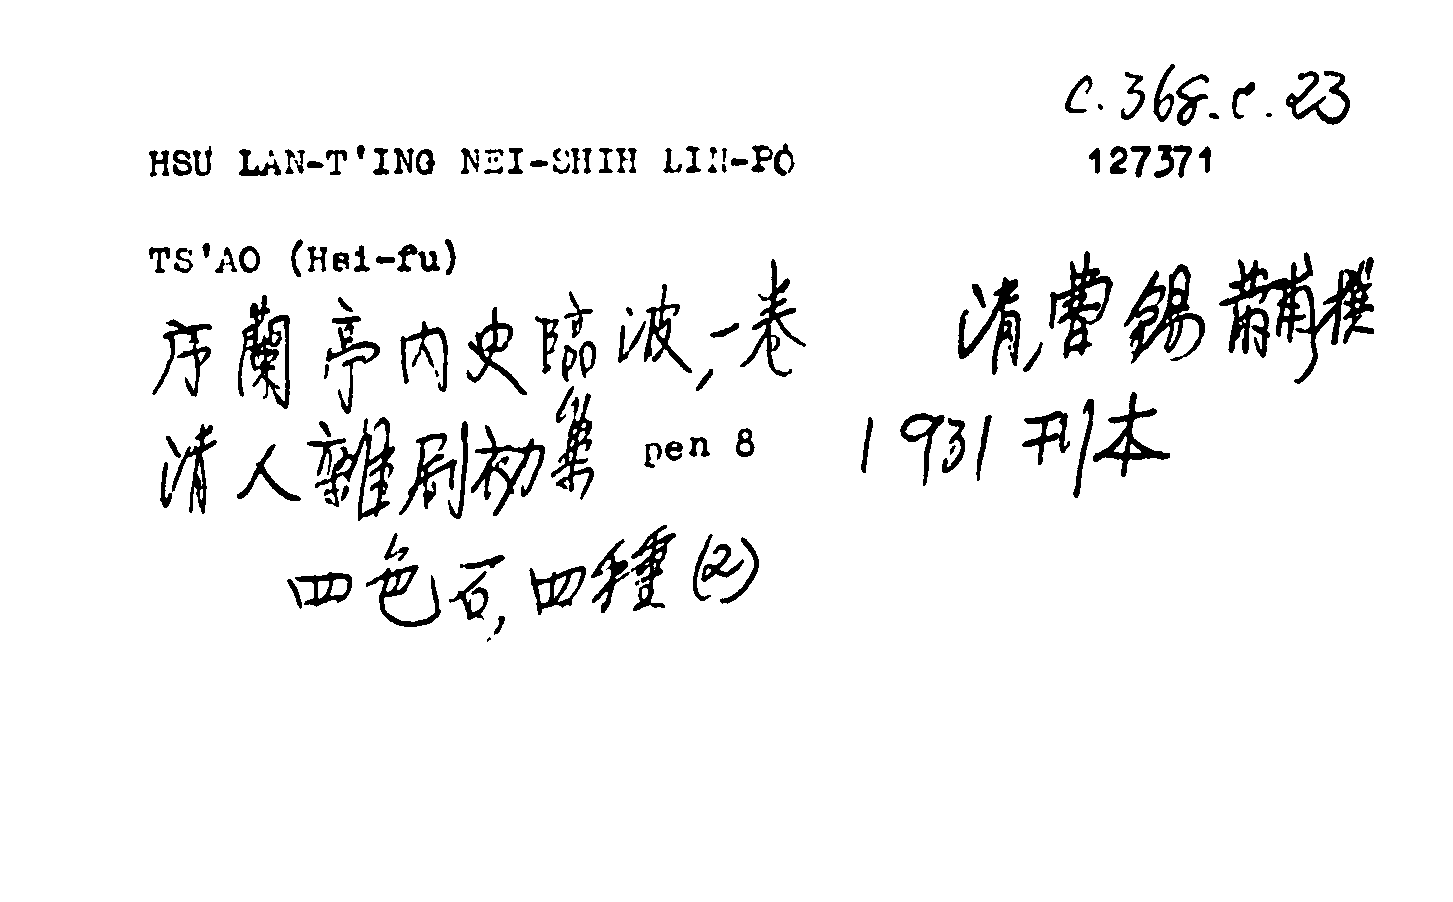 C.368.c.23
HSU LAN-T'ING NEI-SHIH LIN-PO 127371
TS'AO (Hsi-fu)
序蘭亭內史臨波, 一卷 清, 曹錫黼撰
清人雜劇初集 pen 8 1931 刊本
四色石, 四種 (2)